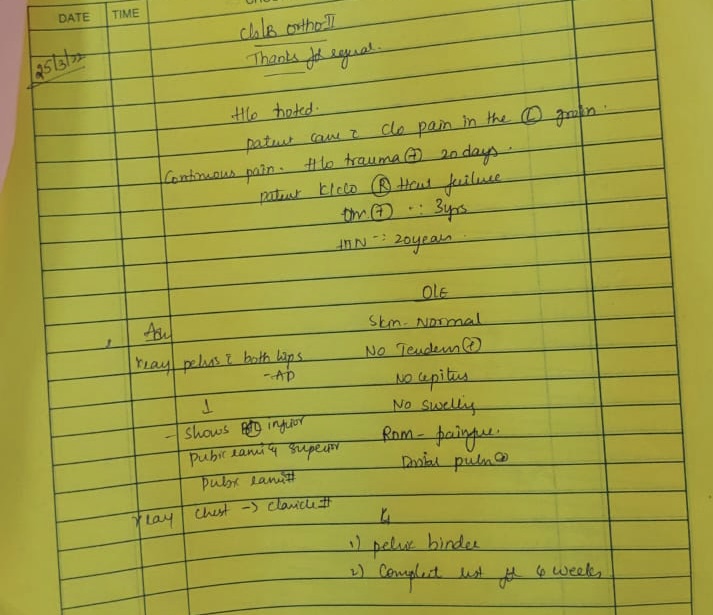 DATE TIME
25/3/22
C/S/B ortho II
Thanks for
H/o noted.
patient came c̄ c/o pain in the Ⓛ groin.
Continuous pain. H/o trauma ⊕ 20 days.
patient K/c/o Ⓡ Heart failure
DM ⊕ :- 3yrs
HTN :- 20years
O/E
Skin - Normal
xray pelvis c̄ both hips
No Tendern
- AP
No cepitus
No swelling
- Shows inferior
pubic rami & superior
ROM - painful.
Distal pulse ⊕
pubic rami #
xray chest -> clavicle #
1) pelvic binder
2) Complete rest for 6 weeks